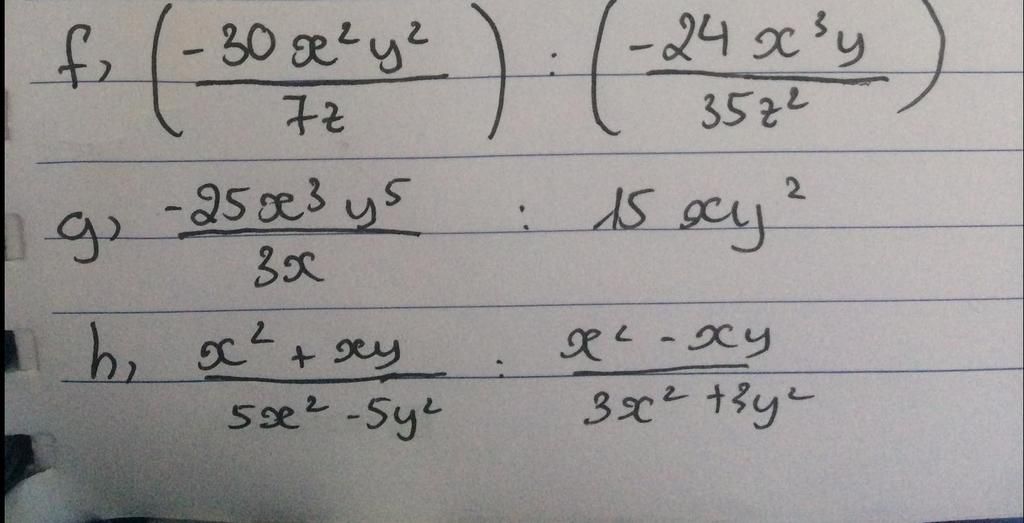 f, (-30x²y² / 7z) : (-24x³y / 35z²)
g, -25x³y⁵ / 3x : 15xy²
h, x² + xy / 5x² - 5y² : x² - xy / 3x² + 3y²